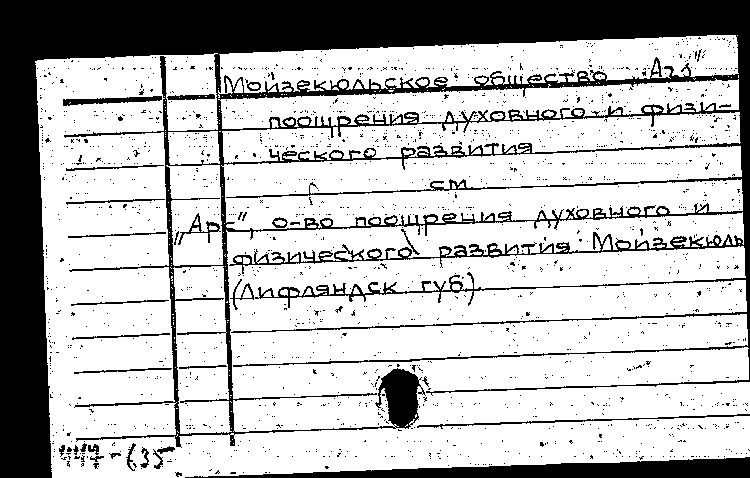 Мойзекюльское общество „Аго"
поощрения духовного и физи-
ческого развития
см.
„Арс", о-во поощрения духовного и
физического развития. Мойзекюль
(Лифляндск. губ.).
447-635